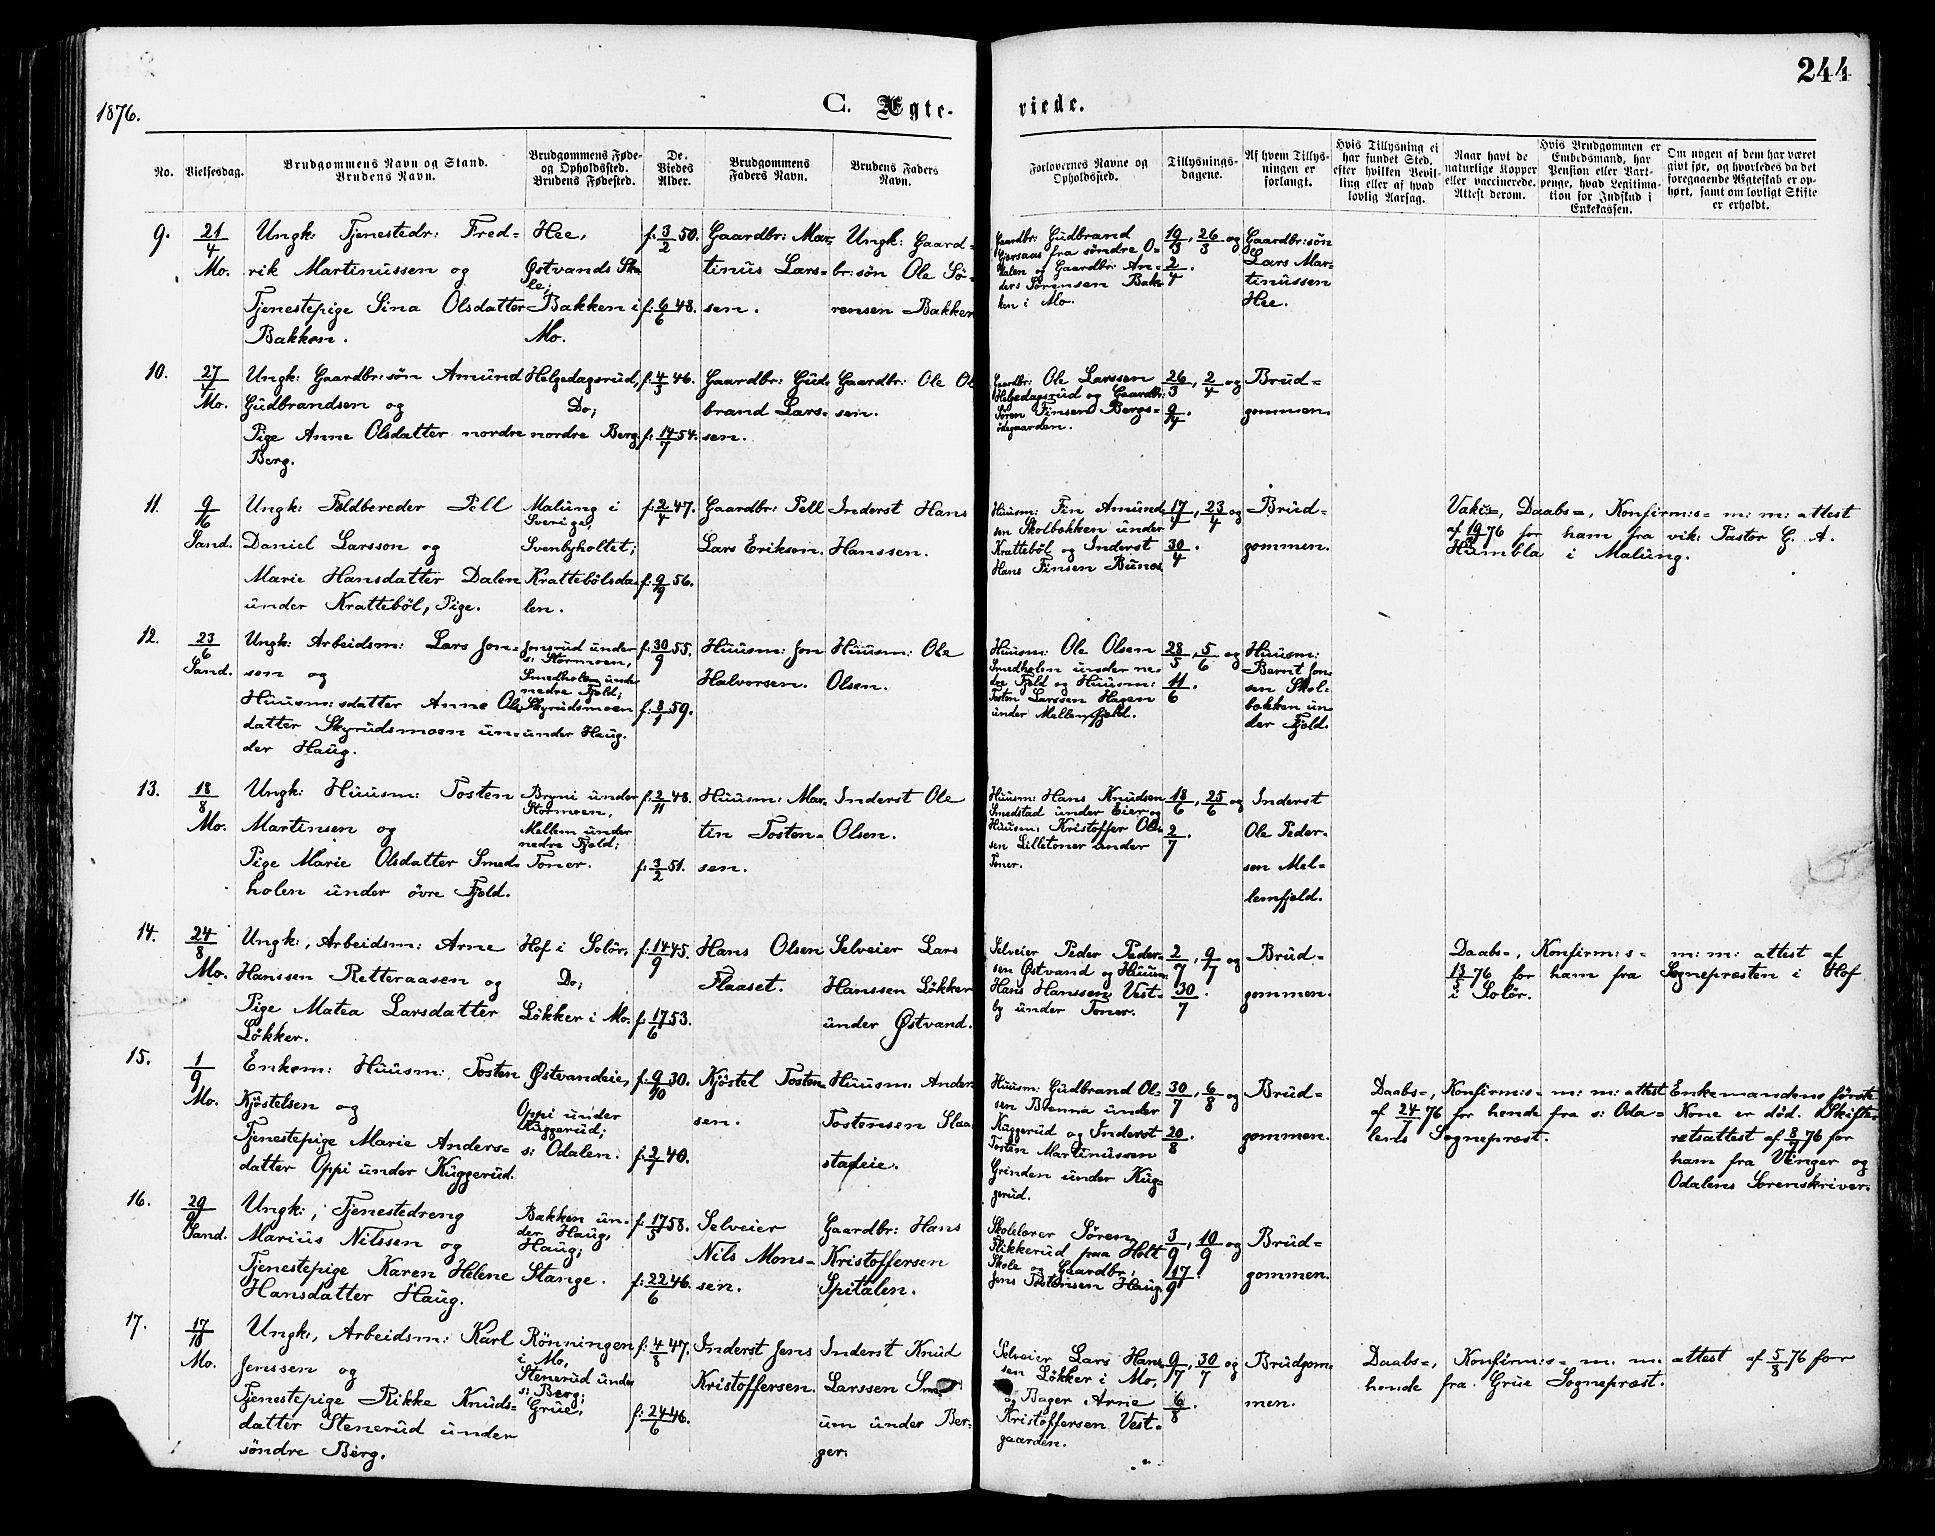 244
1876.
C. Ægte-
viede.
No.
Vielsesdag.
Brudgommens Navn og Stand.
Brudens Navn.
Brudgommens Føde-
og Opholdssted.
Brudens Fødested.
De
Viedes
Alder.
Brudgommens
Faders Navn.
Brudens Faders
Navn.
Forlovernes Navne og
Opholdssted.
Tillysnings-
dagene.
Af hvem Tillys-
ningen er
forlangt.
Hvis Tillysning ei
har fundet Sted,
efter hvilken Bevil-
ling eller af hvad
lovlig Aarsag.
Naar havt de
naturlige Kopper
eller vaccinerede.
Attest derom.
Hvis Brudgommen er
Embedsmand, har
Pension eller Vart-
penge, hvad Legitima-
tion for Indskud i
Enkekassen.
Om nogen af dem har været
givt før, og hvorledes da det
foregaaende Ægteskab er op-
hørt, samt om lovligt Skifte
er erholdt.
9.
21/4
Mo.
Ungk: Tjenestedr: Fred-
rik Martinussen og
Tjenestepige Sina Olsdatter
Bakken.
Hee,
Østvands Sko-
le;
Bakken i
Mo.
f: 3/2 50.
f: 6/6 48.
Gaardbr: Mar-
tinus Lars-
sen.
Ungk: Gaard-
br: søn Ole Sö-
rensen Bakken
Gaardbr: Gudbrand
Gjersaas fra søndre O-
dalen og Gaardbr: An-
ders Sørensen Bak-
ken i Mo.
19/3, 26/3 og
2/4.
Gaardbr: søn
Lars Mar-
tinussen
Hee.
10.
27/4
Mo.
Ungk: Gaardbr: søn Amund
Gudbrandsen og
Pige Anne Olsdatter nordre
Berg.
Helgedagsrud,
Do;
nordre Berg.
f: 4/3 46.
f: 14/7 54.
Gaardbr: Gud-
brand Lars-
sen.
Gaardbr: Ole Ol
sen.
Gaardbr: Ole Larssen
Helgedagsrud og Gaardbr:
Sören Finsen Bergs-
ödegaarden.
26/3, 2/4 og
9/4.
Brud-
gommen.
11.
9/6
Sand.
Ungk: Feldbereder Pell
Daniel Larsson og
Marie Hansdatter Dalen
under Kratteböl, Pige.
Malung i
Sverige,
Svenbyholtet;
Krattebölsda-
len.
f: 2/4 47.
f: 9/9 56.
Gaardbr: Pell
Lars Erikson.
Inderst Hans
Hanssen.
Huusm: Fin Amund-
sen Skolbakken under
Kratteböl og Inderst
Hans Finsen Bunes
17/4, 23/4 og
30/4.
Brud-
gommen.
Daabs-, Konfirm: s- m: m: attest
76 for ham fra vik: Pastor G. A.
Humbla i Malung.
12.
23/6
Sand.
Ungk: Arbeidsm: Lars Jon-
sen og
Huusm: sdatter Anne Ols-
datter Skyrudsmoen un-
der Haug.
Jonsrud under
s: Stormoen,
Smedholen under
nedre Fjeld;
Skyrudsmoen
under Haug.
f: 30/9 55.
59.
Huusm: Jon
Halvorsen.
Huusm: Ole
Olsen.
Huusm: Ole Olsen
Smedholen under ne-
dre Fjeld og Huusm:
Tosten Larssen Hagen
under Mellemfjeld.
28/5, 5/6 og
11/6.
Huusm:
Bernt Jon-
sen Skol-
bakken un-
der Fjeld.
13.
18/8
Mo.
Ungk: Huusm: Tosten
Martinsen og
Pige Marie Olsdatter Smed-
holen under övre Fjeld.
Bryni under
Stormoen,
Mellem under
nedre Fjeld;
Toner.
f: 2/11 48.
f: 3/2 51.
Huusm: Mar-
tin Tosten-
sen.
Inderst Ole
Olsen.
Huusm: Hans Knudsen
Smedstad under Eier og
Huusm: Kristoffer Ol-
sen Lilletoner under
Toner.
18/6, 25/6 og
2/7
Inderst
Ole Peder-
sen Mel-
lemfjeld.
14.
24/8
Mo.
Ungk:, Arbeidsm: Arne
Hanssen Retteraasen og
Pige Matea Larsdatter
Lökker.
Hof i Solör,
Do;
Lökker i Mo.
f: 14/9 45.
f: 17/6 53.
Hans Olsen
Flaaset.
Selveier Lars
Hanssen Lökker
under Østvand.
Selveier Peder Peder-
sen Østvand og Huusm:
Hans Hanssen Vest-
by under Toner.
2/7, 9/7 og
30/7.
Brud-
gommen.
Daabs-, Konfirm: s- m: m: attest af
13/5 76 for ham fra Sognepræsten i Hof
i Solör.
15.
1/9
Mo.
Enkem: Huusm: Tosten
Kjöstelsen og
Tjenestepige Marie Anders-
datter Oppi under Kuggerud.
Østvandeie,
Oppi under
Kuggerud;
s: Odalen.
f: 9/10 30.
f: 2/7 40.
Kjöstel Tosten-
sen.
Huusm: Anders
Tostensen Slaa-
stadeie.
Huusm: Gudbrand Ol-
sen Brenna under
Kuggerud og Inderst
Tosten Martinussen
Grinden under Kug-
gerud.
30/7, 6/8 og
20/8.
Brud-
gommen.
Daabs-, Konfirm: s- m: m: attest
af 24/7 76 for hende fra s: Oda-
lens Sognepræst.
Enkemandens förste
Kone er död. Skifte-
retsattest af 8/7 76 for
ham fra Vinger og
Odalens Sorenskriver.
16.
29/9
Sand.
Ungk:, Tjenestedreng
Marius Nilssen og
Tjenestepige Karen Helene
Hansdatter Haug.
Bakken un-
der Haug,
Haug;
Stange.
f: 17/5 58.
f: 22/6 46.
Selveier
Nils Mons-
sen.
Gaardbr: Hans
Kristoffersen
Spitalen.
Skolelærer Sören
Flikkerud paa Holt
Skole og Gaardbr:
Jens Tostensen Haug
3/9, 10/9 og
17/9.
Brud-
gommen.
17.
17/10
Mo.
Ungk:, Arbeidsm: Karl
Jenssen og
Tjenestepige Rikke Knuds-
datter Stenerud under
söndre Berg.
Rönningen
i Mo,
Stenerud under
s: Berg;
Grue,
f: 4/8 47.
f: 24/6 46.
Inderst Jens
Kristoffersen.
Inderst Knud
Larssen
um under Ber-
ger.
Selveier Lars Hans-
sen Lökker i Mo,
og Bager Arne
Kristoffersen Vest-
gaarden.
9/7, 30/7 og
6/8.
Brudgom-
men.
Daabs-, Konfirm: s- m. m. attest af 5/8 76 for
hende fra Grue Sognepræst.